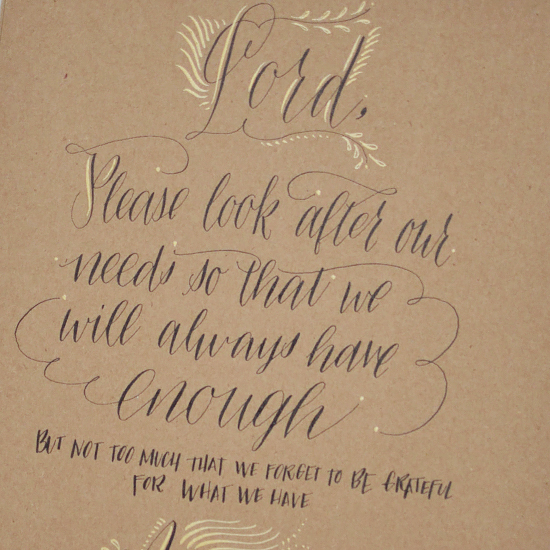 Lord,
Please look after our
needs so that we
will always have
enough
BUT NOT TOO MUCH THAT WE FORGET TO BE GRATEFUL
FOR WHAT WE HAVE